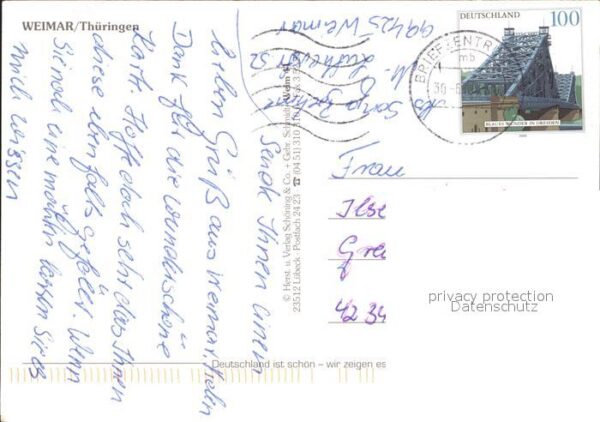 WEIMAR/Thüringen
Sende Ihnen einen
lieben Gruß aus Weimar.
Dank für die wunderschöne
Karte. Hoffe doch sehr das Ihnen
diese ebenfalls gefällt. Wenn
Sie noch eine möchten lassen Sie es
mich wissen
99425 Weimar
© Herst. u. Verlag Schöning & Co. + Gebr. Schmidt
23512 Lübeck · Postfach 24 23 ☎ (04 51) 310 3
Deutschland ist schön – wir zeigen es
DEUTSCHLAND 100
BLAUES WUNDER IN DRESDEN
BRIEFZENTR
mb
Frau
Ilse
Gre
42 34
privacy protection
Datenschutz